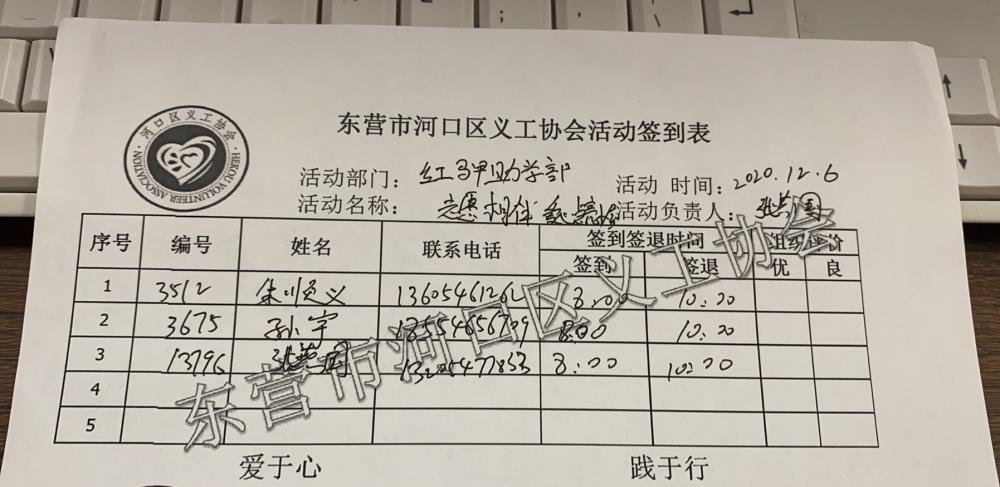 东营市河口区义工协会活动签到表
河口区义工协会
HEKOU VOLUNTEER ASSOCIATION
活动部门：红马甲助学部 活动 时间：2020.12.6
活动名称： 志愿相伴 活动负责人：
序号 编号 姓名 联系电话 签到签退时间 组织评价
签到 签退 优 良
1 3512 朱川义 13605461262 8:00 10:00
2 3675 孙宇 8:00 10:00
3 13796 8:00 10:00
4
5
东营市河口区义工协会
爱于心 践于行